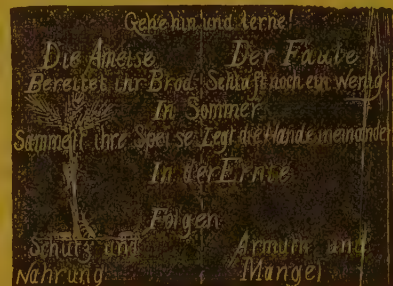 Gehe hin und lerne!
Die Ameise Der Faule
Bereitet ihr Brod Schläft noch ein wenig
In Sommer
Sammelt ihre Speise Legt die Hände ineinander
In der Ernte
Folgen
Schutz und Armuth und
Nahrung Mangel